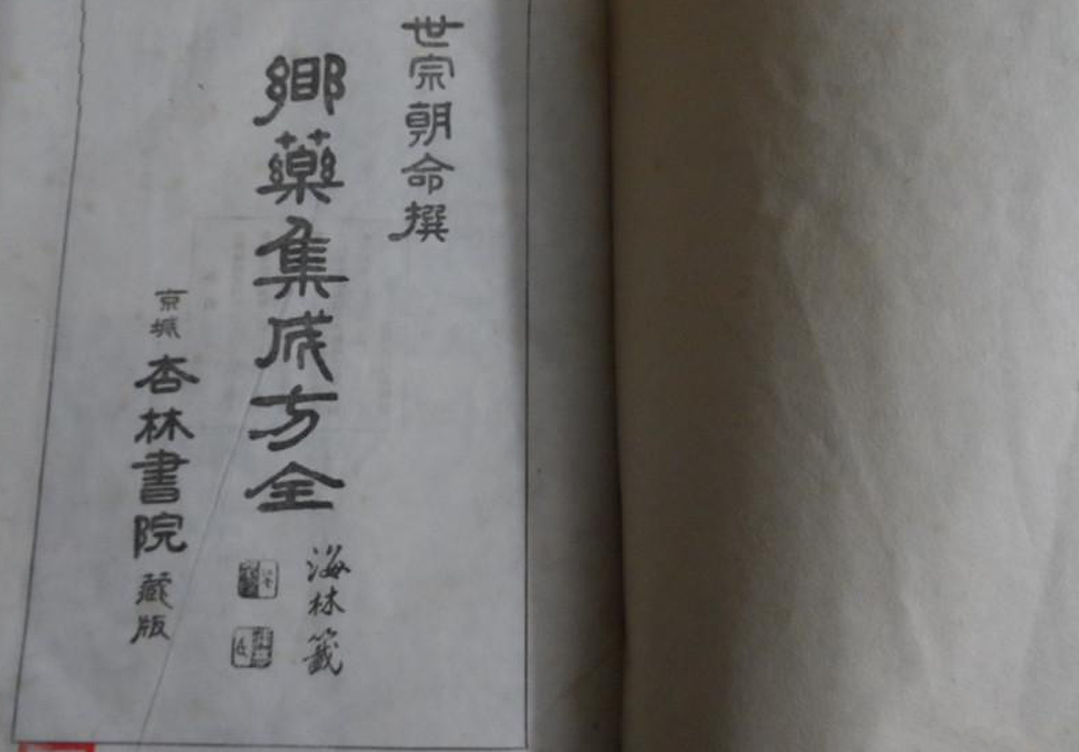 世宗朝命撰
鄕藥集成方全
海林籤
京城杏林書院藏版